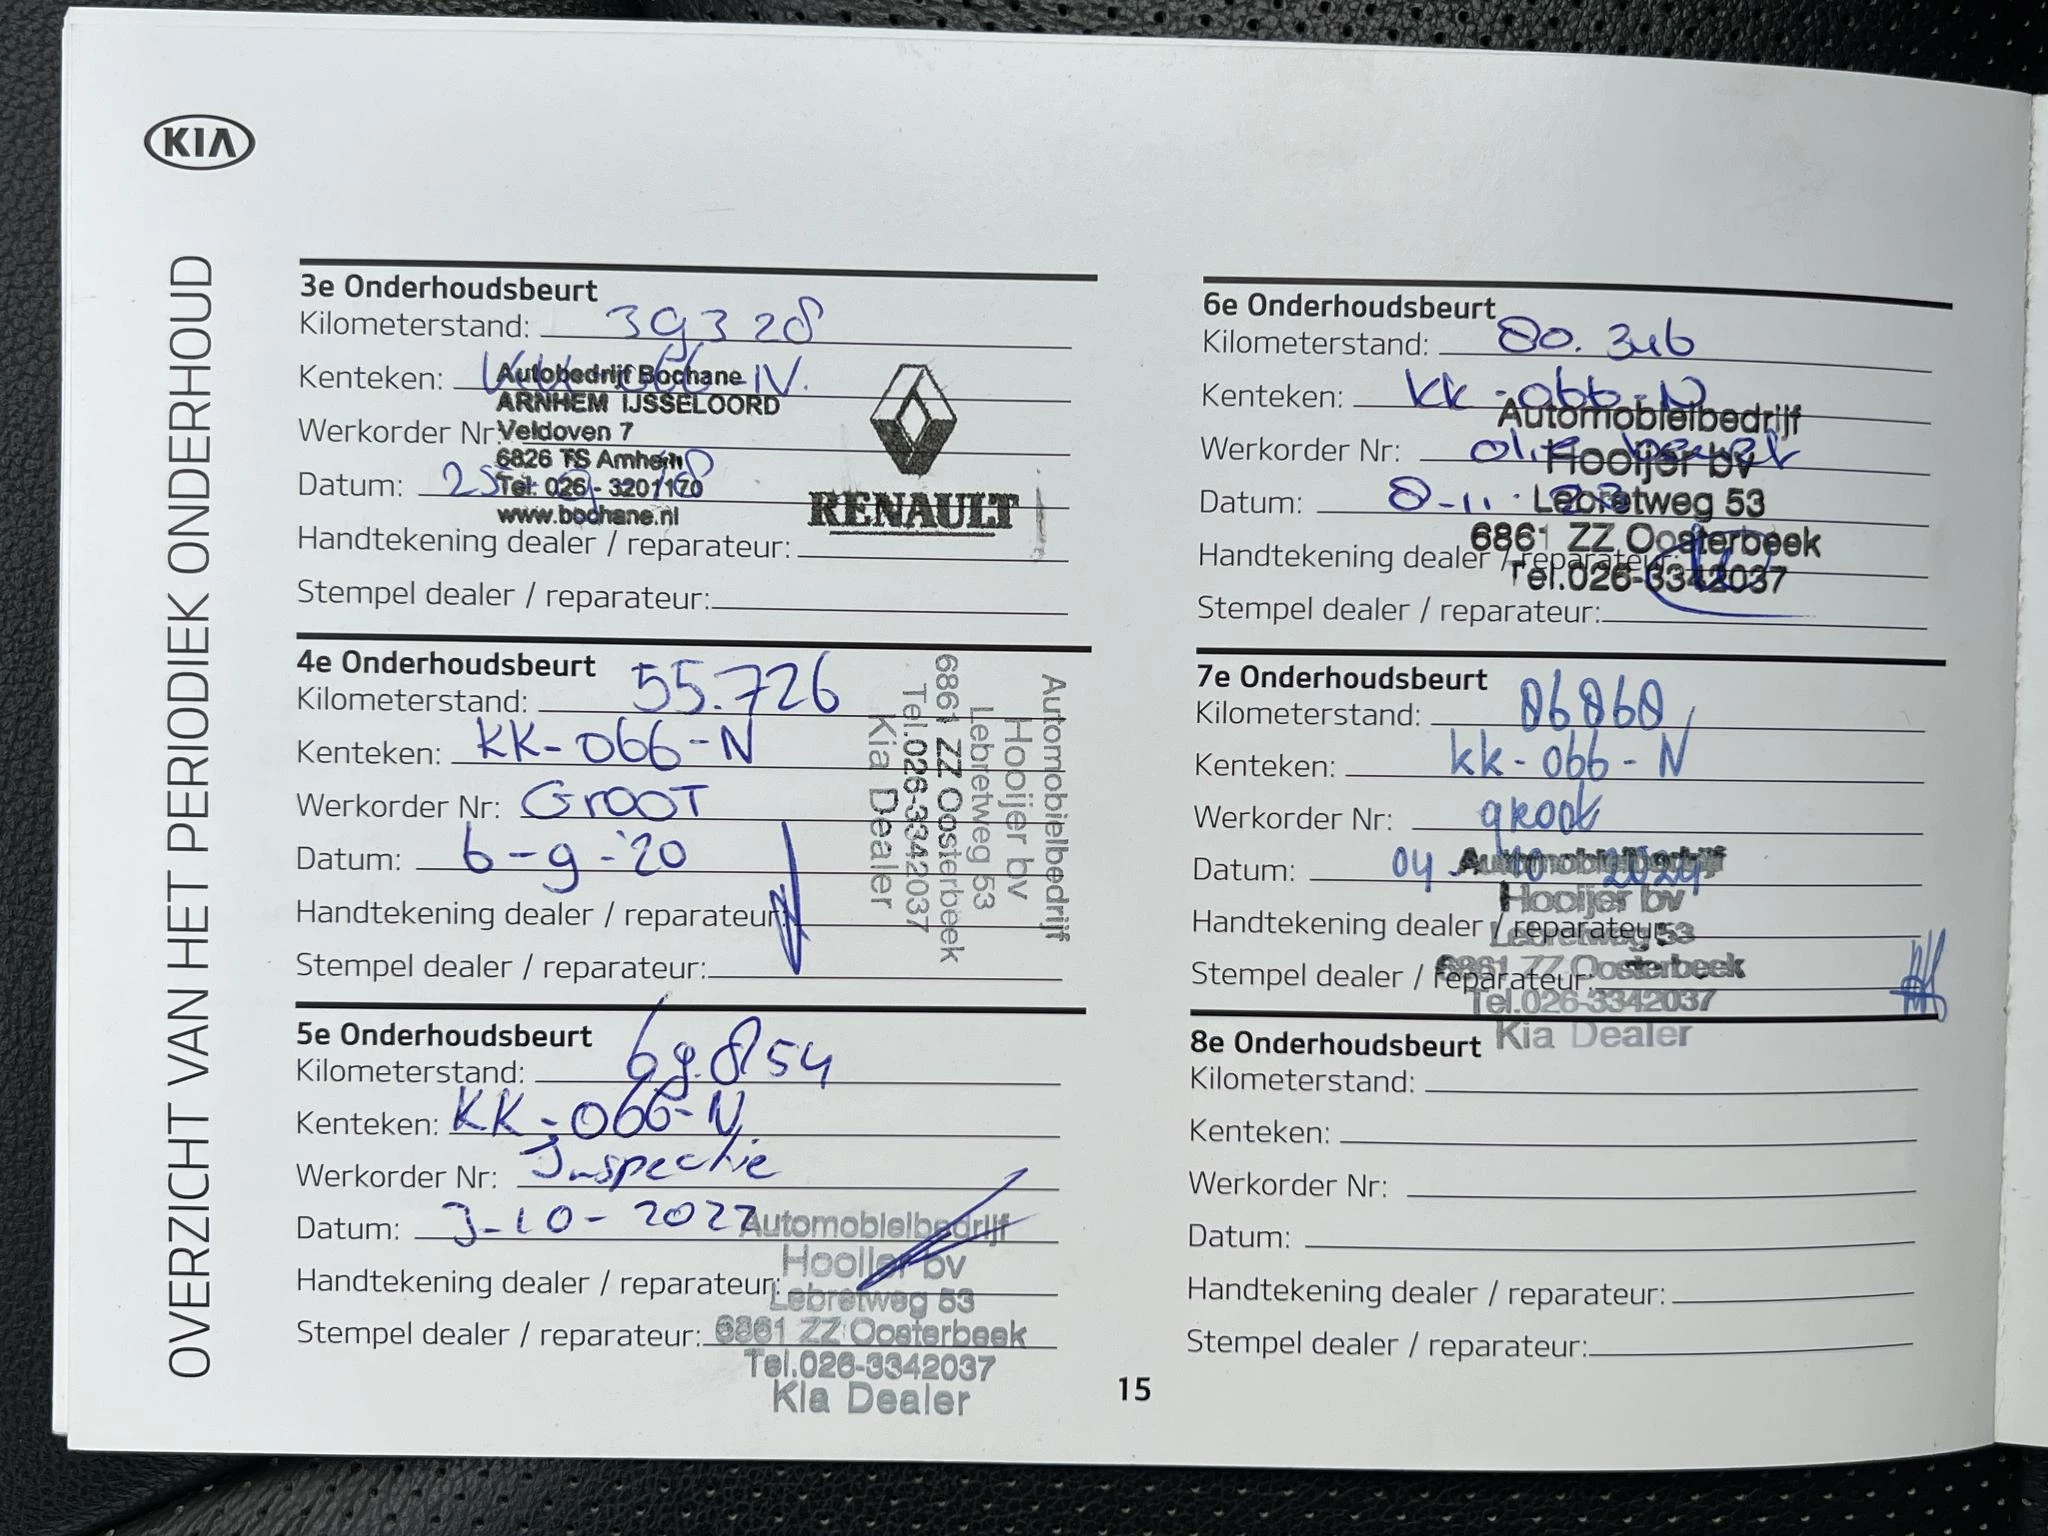 KIA
OVERZICHT VAN HET PERIODIEK ONDERHOUD
3e Onderhoudsbeurt
Kilometerstand: 39328
Kenteken: KK-066-N.
Autobedrijf Bochane
ARNHEM IJSSELOORD
Werkorder Nr:
Veldoven 7
6826 TS Arnhem
Datum: 25
Tel: 026 - 3201170
www.bochane.nl
RENAULT
Handtekening dealer / reparateur:
Stempel dealer / reparateur:
4e Onderhoudsbeurt
Kilometerstand: 55.726
Kenteken: KK-066-N
Werkorder Nr: GROOT
Datum: 6-9-'20
Handtekening dealer / reparateur:
Stempel dealer / reparateur:
Automobielbedrijf
Hooijer bv
Lebretweg 53
6861 ZZ Oosterbeek
Tel.026-3342037
Kia Dealer
5e Onderhoudsbeurt
Kilometerstand: 69.854
Kenteken: KK-066-N.
Werkorder Nr: Inspectie
Datum: 3-10-2022
Automobielbedrijf
Hooijer bv
Handtekening dealer / reparateur:
Lebretweg 53
Stempel dealer / reparateur:
6861 ZZ Oosterbeek
Tel.026-3342037
Kia Dealer
6e Onderhoudsbeurt
Kilometerstand: 80.346
Kenteken: KK-066-N
Automobielbedrijf
Werkorder Nr: olie
Hooijer bv
Datum: 8-11-23
Lebretweg 53
6861 ZZ Oosterbeek
Handtekening dealer / reparateur:
Tel.026-3342037
Stempel dealer / reparateur:
7e Onderhoudsbeurt
Kilometerstand: 86868
Kenteken: kk-066-N
Werkorder Nr: groot
Datum: 04-10-2024
Automobielbedrijf
Hooijer bv
Handtekening dealer / reparateur:
Lebretweg 53
Stempel dealer / reparateur:
6861 ZZ Oosterbeek
Tel.026-3342037
Kia Dealer
8e Onderhoudsbeurt
Kilometerstand:
Kenteken:
Werkorder Nr:
Datum:
Handtekening dealer / reparateur:
Stempel dealer / reparateur:
15